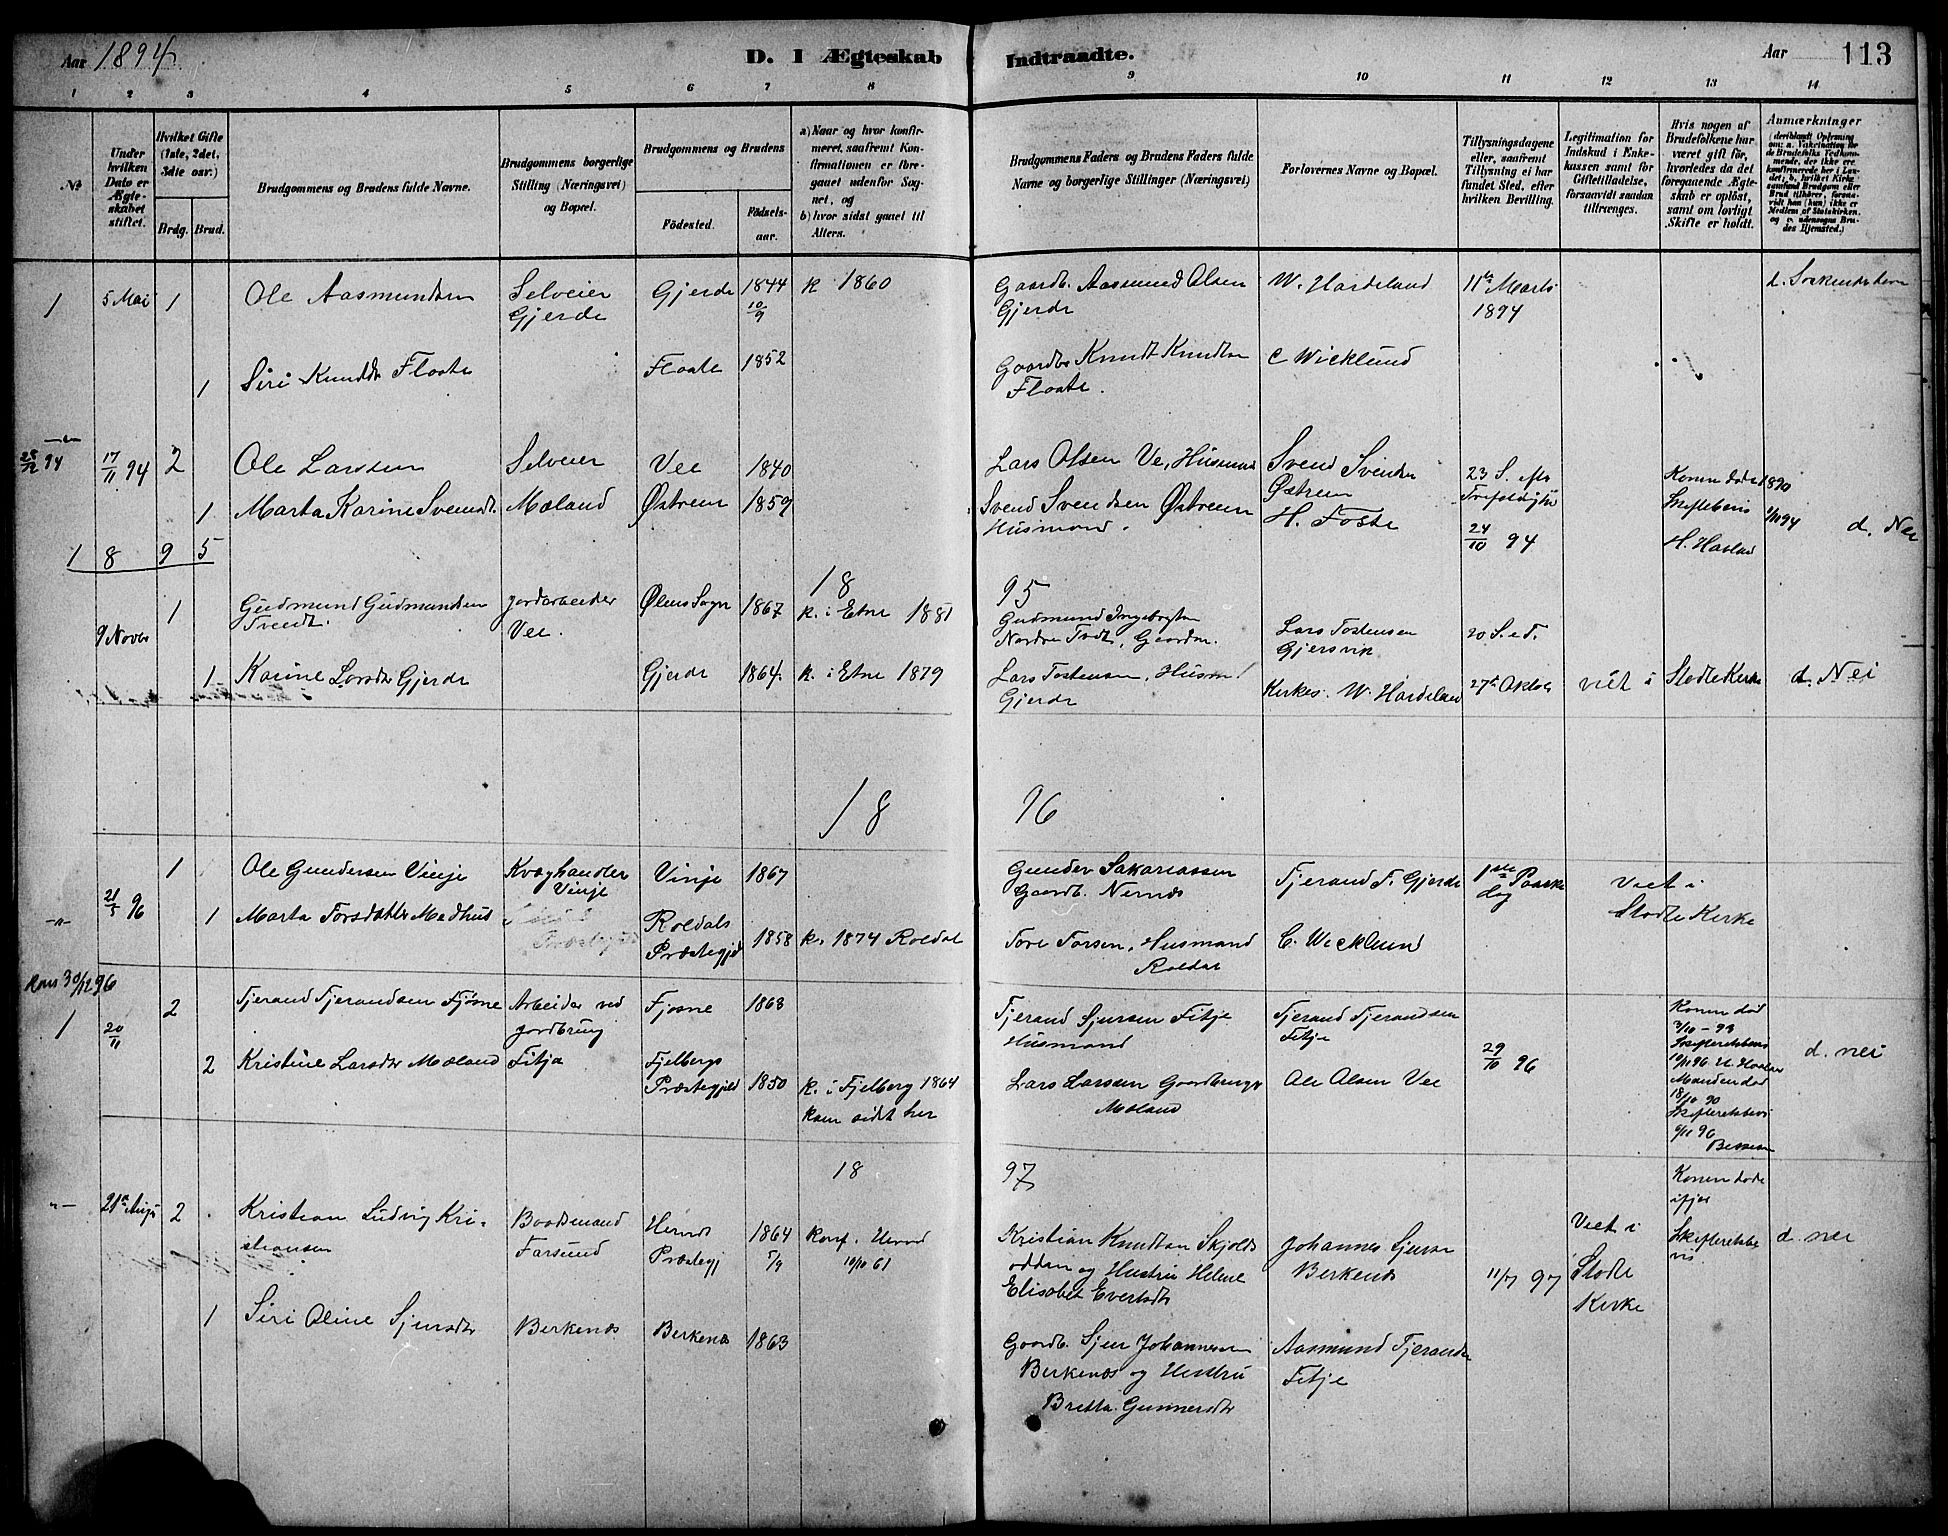 Aar 1894
D. I Ægteskab Indtraadte.
Aar 113
1 2 3 4 5 6 7 8 9 10 11 12 13 14
№
Under hvilken Dato er Ægteskabet stiftet.
Hvilket Gifte (1ste, 2det, 3die osv.)
Brdg. Brud.
Brudgommens og Brudens fulde Navne.
Brudgommens borgerlige Stilling (Næringsvei) og Bopæl.
Brudgommens og Brudens
Fødested.
Fødselsaar.
a) Naar og hvor konfirmeret, saafremt Konfirmationen er foregaaet udenfor Sognet, og
b) hvor sidst gaaet til Alters.
Brudgommens Faders og Brudens Faders fulde Navne og borgerlige Stillinger (Næringsvei)
Forlovernes Navne og Bopæl.
Tillysningsdagene eller, saafremt Tillysning ei har fundet Sted, efter hvilken Bevilling.
Legitimation for Indskud i Enkekassen samt for Giftetilladelse, forsaavidt saadan tiltrænges.
Hvis nogen af Brudefolkene har været gift før, hvorledes da det foregaaende Ægteskab er opløst, samt om lovligt Skifte er holdt.
Anmærkninger
1 5 Mai 1 Ole Aasmundsen Selveier Gjerde Gjerde 1844 10/9 k 1860
Gaardb. Aasmund Olsen Gjerde W. Hardeland 11te Marts 1894
1 Siri Knudsdr Floate Floate 1852
Gaardbr Knudt Knudsen Floate. C Wicklund
28/12 94 17/11 94 2 Ole Larsen Selveier Vee 1840
Lars Olsen Ve, Husmand Svend Svendsen Østrem 23 S. efter Konen døde 1890
1 Marta Karine Svendsdt. Mæland Østrem 1859
Svend Svendsen Østrem Husmand. H. Foste 24/10 94 Skiftebevis 1/10 94 d. Nei
1 8 9 5
18 95
9 Novbr 1 Gudmund Gudmundsen Tvedt. Jordarbeider Vee. Ølens Sogn 1867 k. i Etne 1881
Gudmund Ingebrigtsen Nordre Tvdt, Gaardm. Lars Tostensen Gjersvik 20 S. e T.
1 Karine Larsdtr Gjerde Gjerde 1864. k. i Etne 1879
Lars Tostensen, Husmd Gjerde Kirkes. W. Hardeland 27de Oktob viet i Stodle Kirke d. Nei
18 96
21/5 96 1 Ole Gundersen Vinje Kvæghandler Vinje Vinje 1867
Gunder Sakariassen Gaardb. Nernes Tjerand T. Gjerde 1ste Paaskedag Viet i Stodle Kirke
1 Marta Torsdatter Medhus Roldals Præstegjd 1858 k. 1874 Roldal
Tore Torsen, Husmand Roldal C. Wicklund
Kons 30/12 96
1 20/11 2 Tjerand Tjerandsen Fjøsne Arbeider ved jordbrug Fjosne 1868
Tjerand Sjursen Fitje Husmand Tjerand Tjerandsen Fitje 29/10 96
Konen død 3/10 - 93 Skifteretsbevis
2 Kristine Larsdtr Mæland Fitja Fjelbergs Præstegjeld 1850 k. i Fjelberg 1864 kom sidst her
Lars Larssen Gaardbruger Mæland Ole Olsen Vee
Manden død 18/10 90 Skifteretsbevis 9/11 96 d. nei
18 97
21de Aug 2 Kristian Ludvig Kristiansen Baadsmand Farsund Herred Præstegj 1864 5/9 Konf. Herred 10/10 61
Kristian Knudsen Skjoldsodden og Hustru Helene Elisabet Evertsdtr Johannes Sjursen Berkenes 11/7 97 Viet i Stodle Kirke
Konen døde ifjor Skifteretsbevis d. nei
1 Siri Oline Sjursdtr Berkenes Berkenes 1863
Gaardb. Sjur Johannesen Berkenes og Hustru Britta Gunnersdtr Aasmund Tjerandsen Fitje